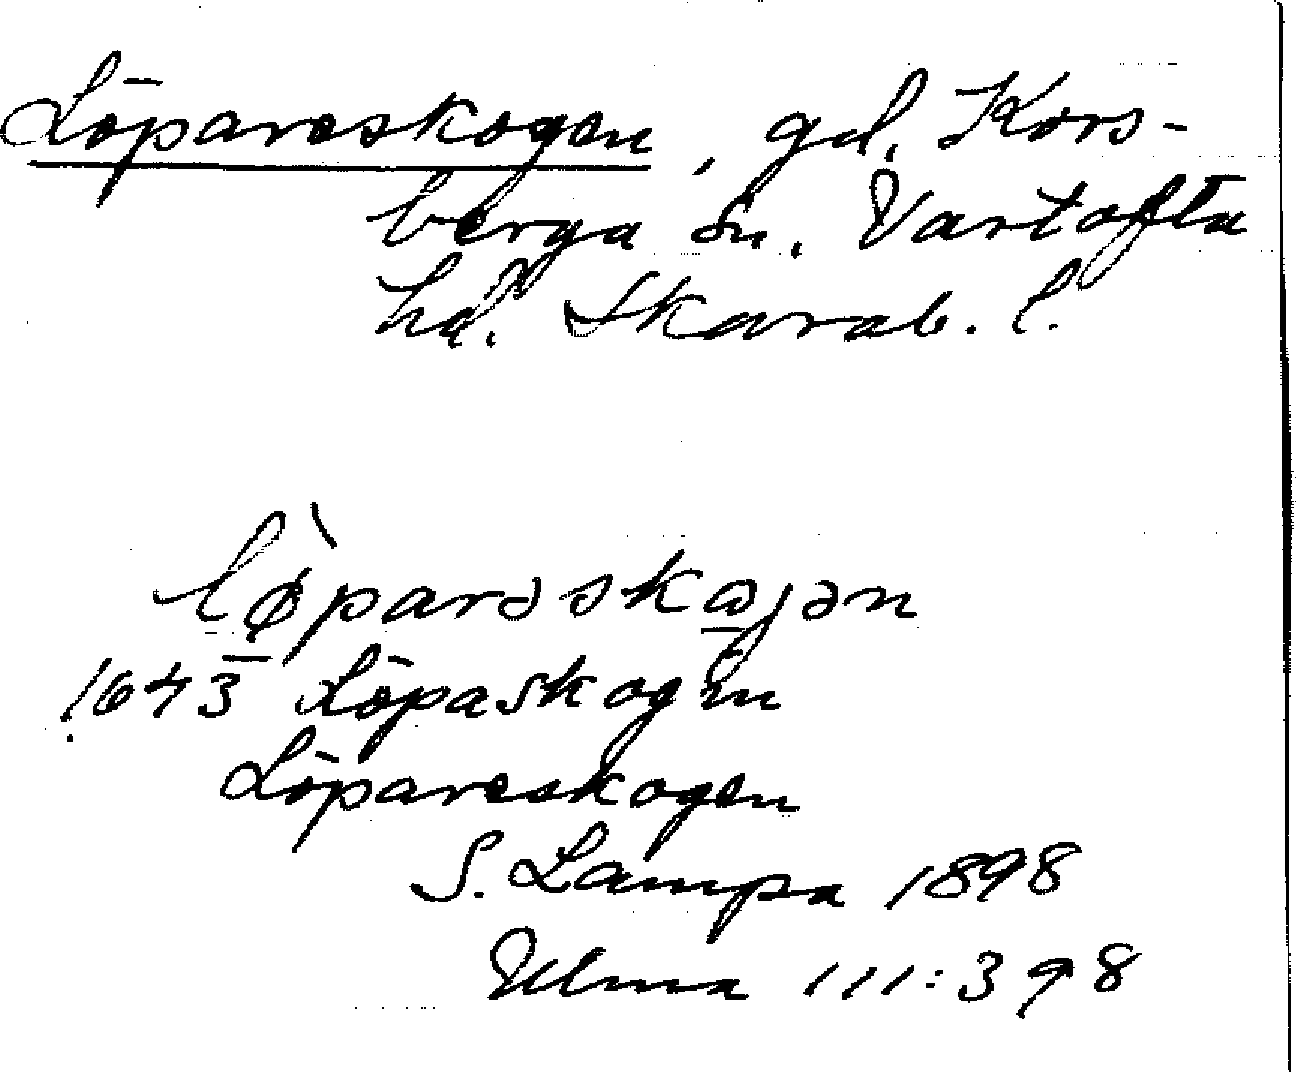 Löpareskogen, gd. Kors-
berga sn. Vartofta
hd. Skarab. l.
lø̀parəskaɡən
1643 Löpaskogen
Löpareskogen
S. Lampa 1898
Ulma 111:398